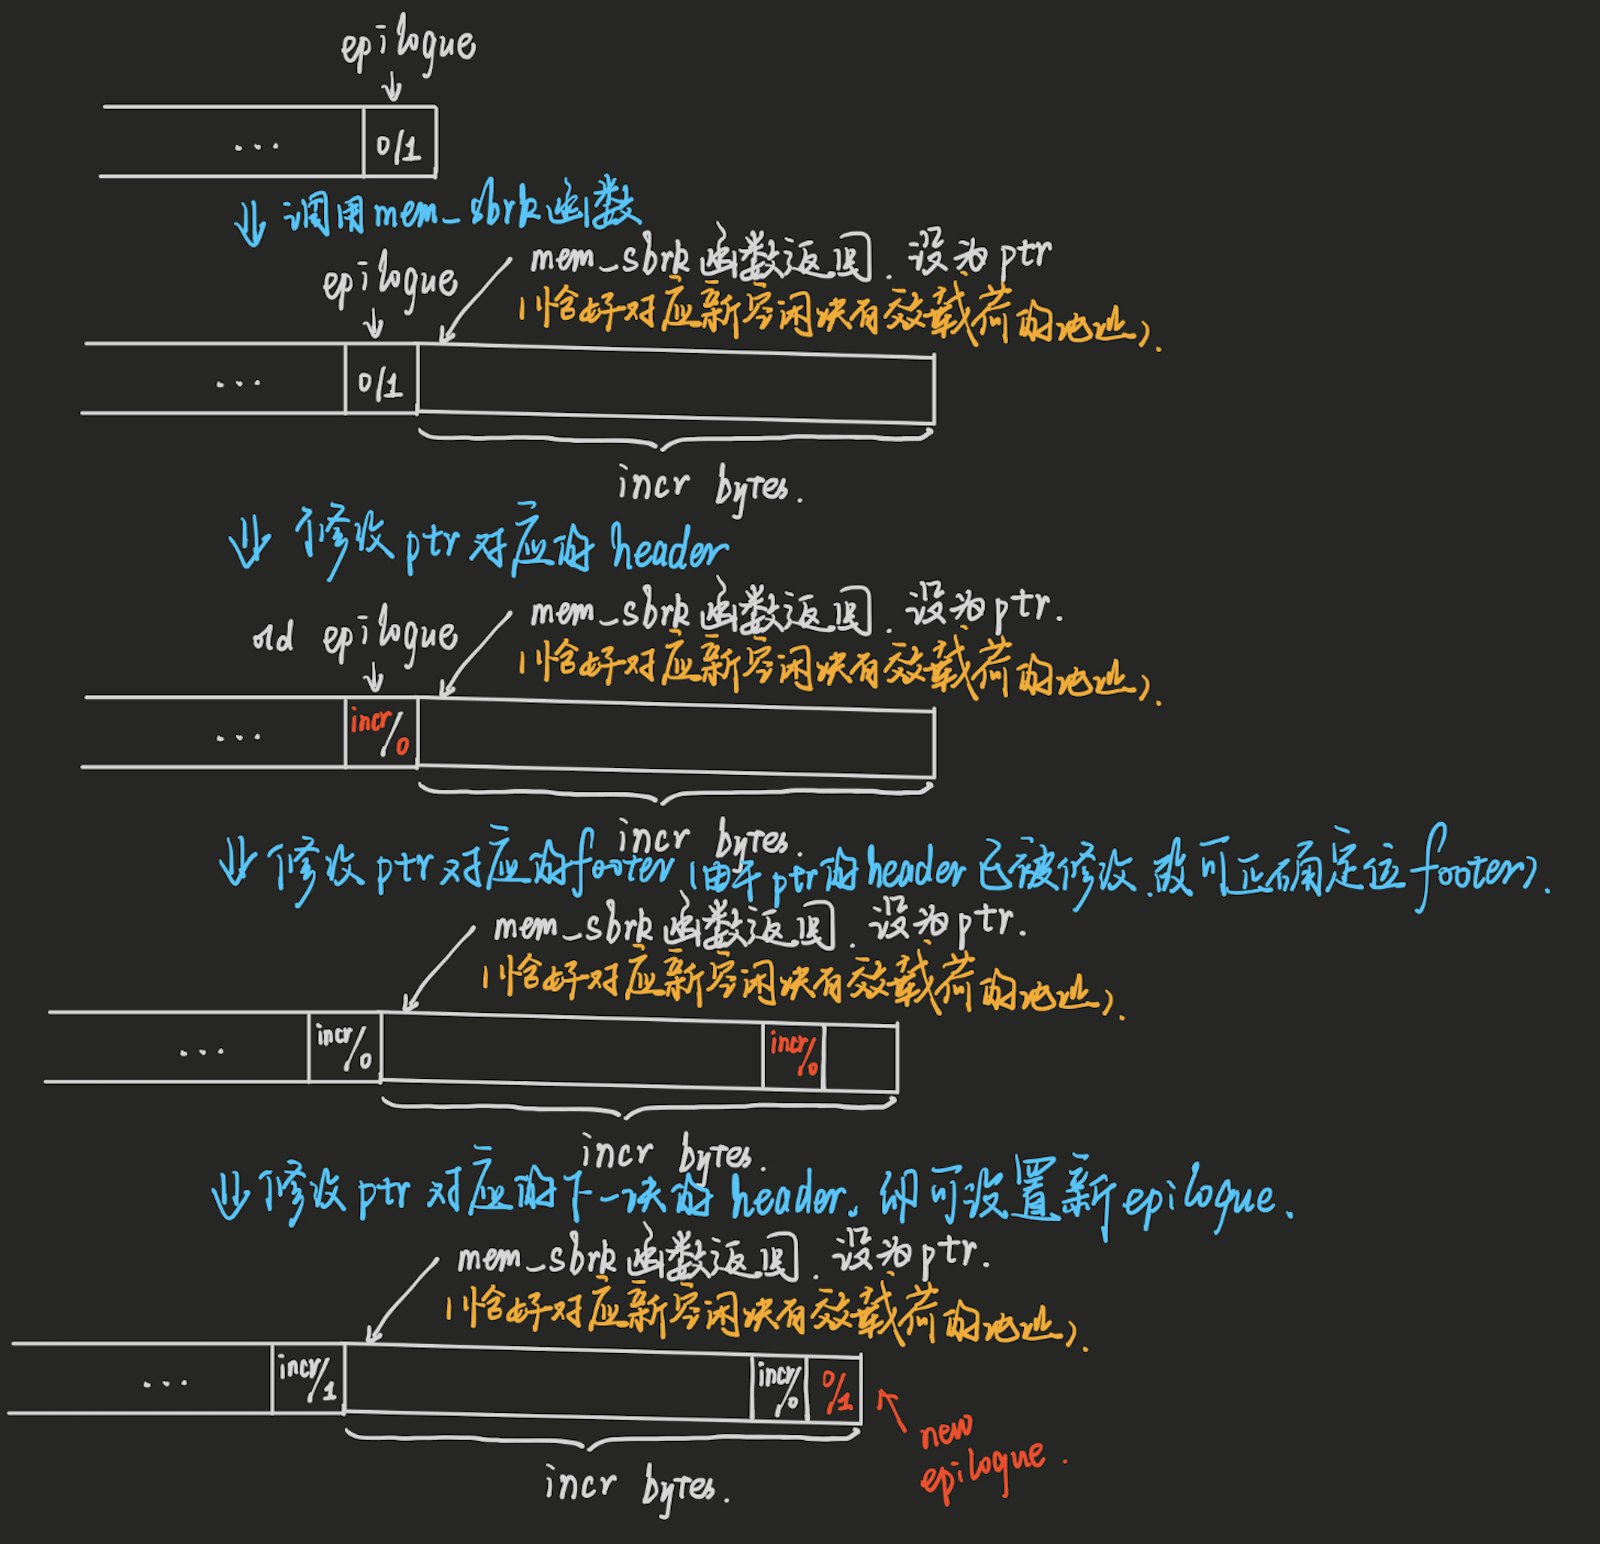 epilogue
... 0/1
调用mem_sbrk函数
mem_sbrk函数返回,设为ptr
epilogue
(恰好对应新空闲块有效载荷的地址).
... 0/1
incr bytes.
修改ptr对应的header
mem_sbrk函数返回,设为ptr.
old epilogue
(恰好对应新空闲块有效载荷的地址).
... incr/0
incr bytes.
修改ptr对应的footer(由于ptr的header已被修改,故可正确定位footer).
mem_sbrk函数返回,设为ptr.
(恰好对应新空闲块有效载荷的地址).
... incr/0 incr/0
incr bytes.
修改ptr对应的下一块的header,即可设置新epilogue.
mem_sbrk函数返回,设为ptr.
(恰好对应新空闲块有效载荷的地址).
... incr/1 incr/0 0/1
new
epilogue.
incr bytes.